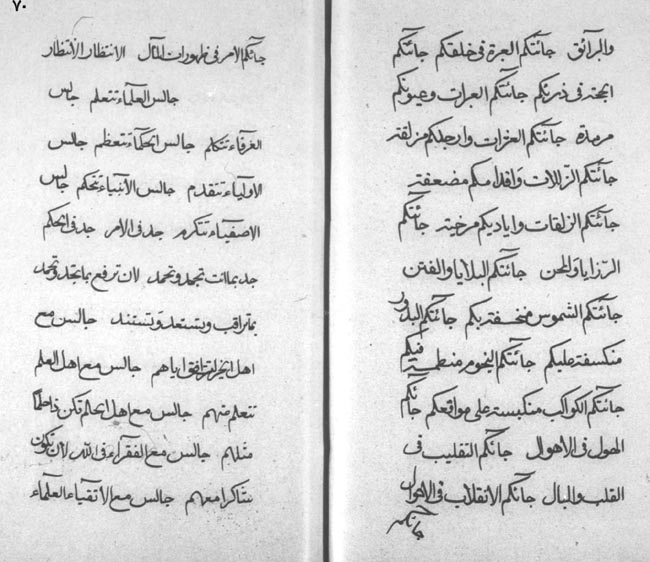 والبرائق جائتكم العبرة فى خلقكم جائتكم
فى ذرئكم جائتكم العبرات وعيونكم
مرمدة جائتكم العثرات وارجلكم مزلقة
جائتكم الزّللات وَاقدامكم مضعفة
جائتكم الزلقات واياديكم مرخية جائتكم
الرّزايا وَالمحن جائتكم البلايا والفتن
جائتكم الشموس منخسفة بكم جائتكم البدور
منكسفة عليكم جائتكم النجوم منطمسة فيكم
جائتكم الكواكب منكبسة على مواقعكم جائكم
الهول فى الاهوال جائكم التقليب فى
القلب والبال جائكم الانقلاب فى الاهوال
جائكم
٧٠
جائكم الامر فى ظهورات المآل الانتظار الانتظار
جالس العلمآء تتعلم جالس
العرفآء تتكلم جالس الحكمآء تتعظم جالس
الاوليآء تتقدم جالس الأنبيآء تتحكم جالس
الاصفيآء تتكرم جد فى الامر جد فى الحكم
جد بماانت تجهد وتحمد لان ترفع بما تجهد وتحمد
بما تراقب وتستعد وَتستند جالس مع
اهل اياهم جالس مع اهل العلم
تتعلم منهم جالس مع اهل الحلم تكن
مثلهم جالس مع الفقرآء فى اللّه لان تكون
شاكرا معهم جالس مع الأتقيآء العلمآء